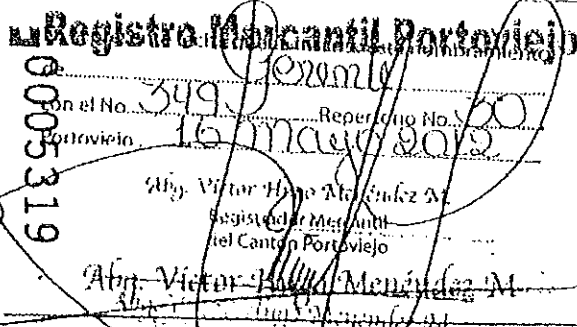 Registro Mercantil Portoviejo
0005319
nombramiento
de Gerente
con el No. 349 Repertorio No.
Portoviejo 16 Mayo 2012
Abg. Víctor Hugo Menéndez M.
Registrador Mercantil
del Cantón Portoviejo
Abg. Víctor Hugo Menéndez M.